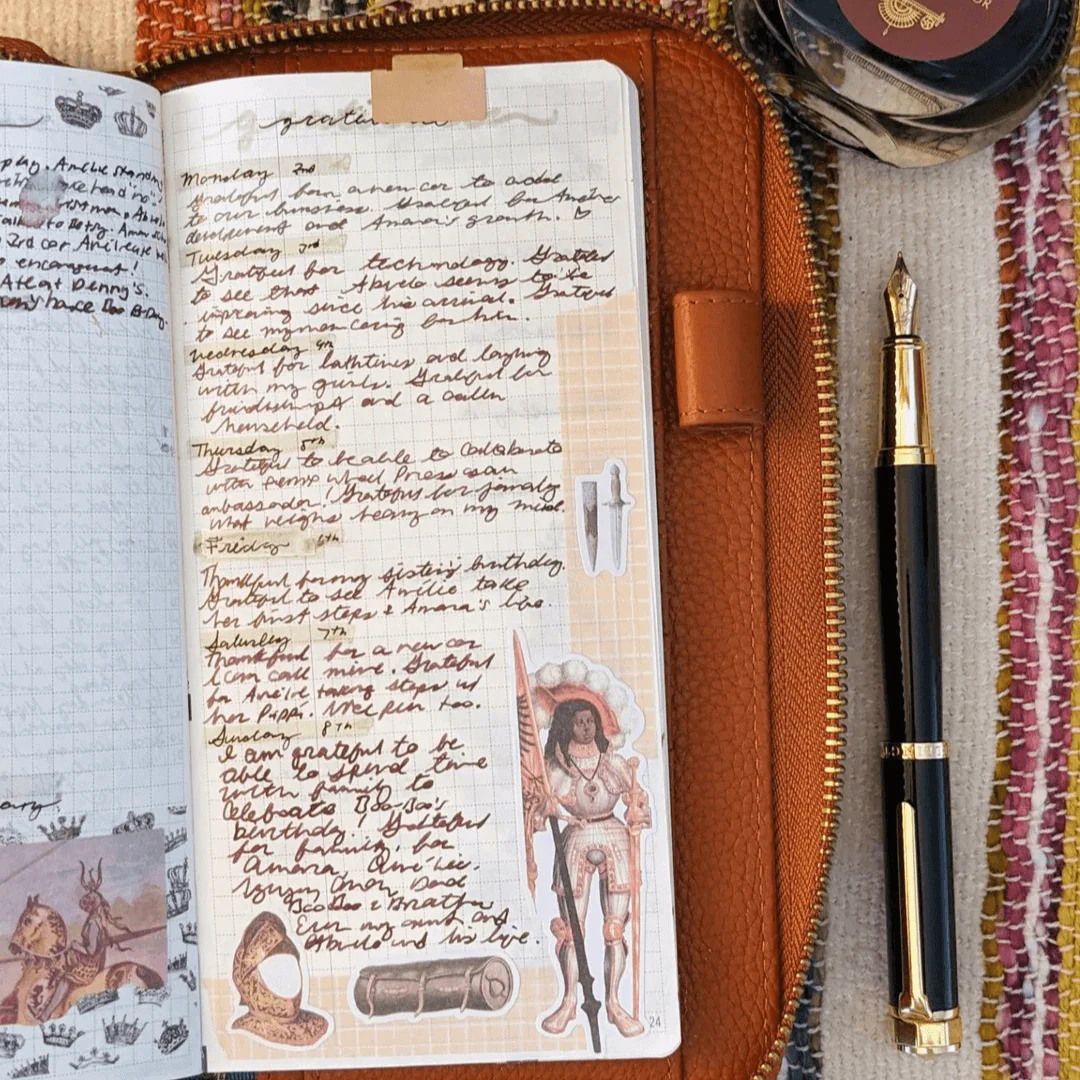 play. Amélie standing
Talk to Betsy.
2rd car.
encanguent!
Ate at Denny's.
Boo B-Day.
ary.
OR
gratitude
Monday 2nd
Grateful for a new car to add
to our business. Grateful for Amélie's
development and Amara's growth. ♡
Tuesday 3rd
Grateful for technology. Grateful
to see that Abuelo seems to be
improving since his arrival. Grateful
to see my mom caring for him.
Wednesday 4th
Grateful for bathtimes and laughing
with my girls. Grateful for
friendships and a calm
household.
Thursday 5th
Grateful to be able to collaborate
with Ferris Wheel Press as an
ambassador! Grateful for family
what weighs heavy on my mind.
Friday 6th
Thankful for my sister's birthday.
Grateful to see Amélie take
her first steps & Amara's love.
Saturday 7th
Thankful for a new car
I can call mine. Grateful
for Amélie taking steps w/
her Pappi.
Sunday 8th
I am grateful to be
able to spend time
with family to
celebrate Boo-Boo's
birthday! Grateful
for family, for
Amara, Amélie.
Mom, Dad
Boo Boo & Brother
Even my aunt and
Abuelo and his life.
24